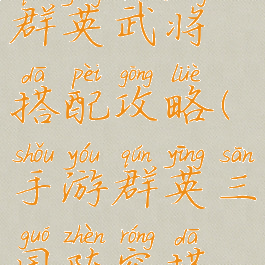 群英武将
dā pèi gōng lüè
搭配攻略(
shǒu yóu qún yīng sān
手游群英三
guó zhèn róng dā
国阵容搭